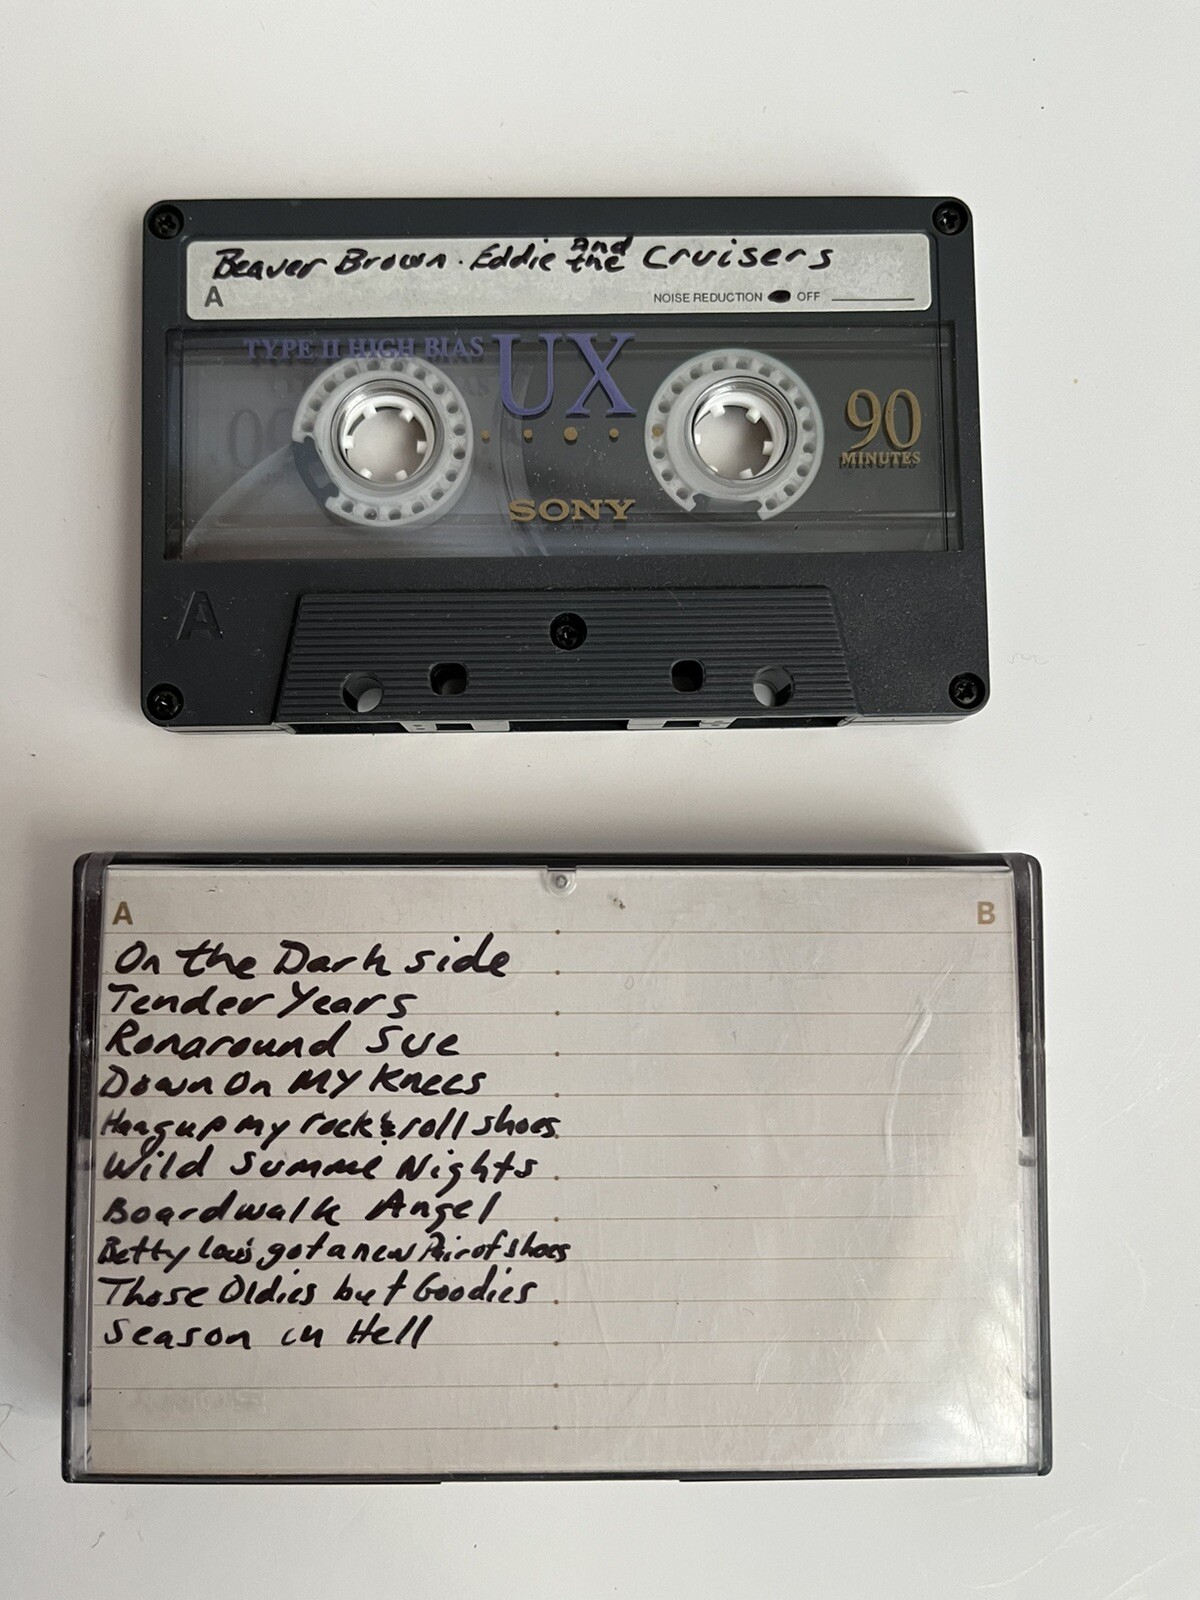 Beaver Brown. Eddie and the Cruisers
A
NOISE REDUCTION OFF
TYPE II HIGH BIAS UX
90
MINUTES
SONY
A
A B
On the Dark side
Tender Years
Runaround Sue
Down On MY Knees
Hang up my rock & roll shoes
Wild Summe Nights
Boardwalk Angel
Betty Lou's got a new Pair of shoes
Those Oldies but Goodies
Season in Hell